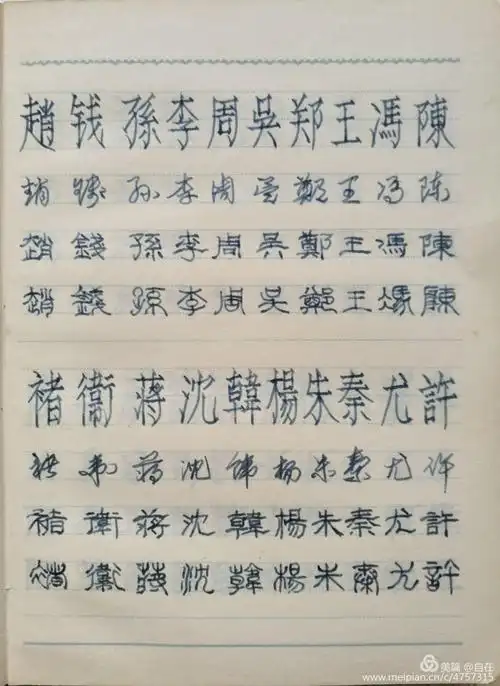 趙钱孫李周吳郑王馮陳
趙錢孙李周吴鄭王冯陈
趙錢孫李周吳鄭王馮陳
趙錢孫李周吳鄭王馮陳
褚衞蒋沈韓楊朱秦尤許
褚卫蒋沈韩杨朱秦尤许
褚衛蔣沈韓楊朱秦尤許
褚衛蔣沈韓楊朱秦尤許
美篇 @自在
www.meipian.cn/c/4757315